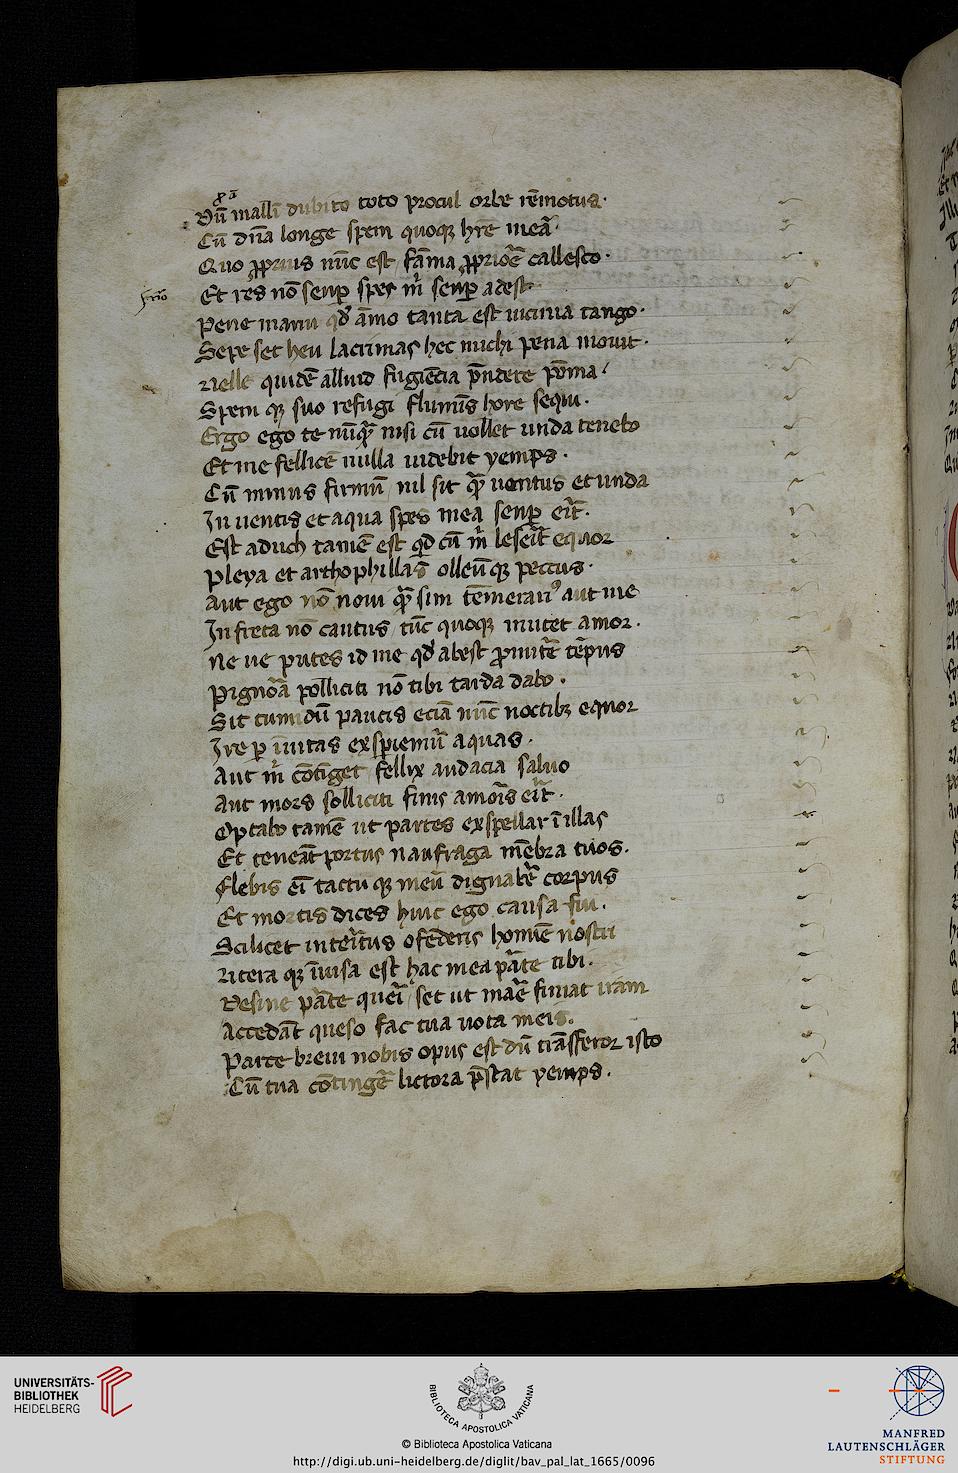 Dū mallī dubito toto procul orbe remotus·
Cū dña longe spem quoqꝫ hr̄e meā·
Quo ꝓprius nūc est fāma ꝓpriōe callesco·
Et res nō senꝑ spes m̄ senꝑ adest
Pene manu qđ amo tanta est uicinia tango·
Sepe set heu lacrimas hec michi pena mouit·
Uelle quidē alluid fugiēcia p̄ndere poma
Spem qꝫ suo refugi flumīs hore sequi·
Ergo ego te nūqᷓ nisi cū uollet unda tenebo
Et me fellicē nulla uidebit yemps·
Cū minus firmū nil sit qᷓ uentus et unda
In uentis et aqua spes mea senꝑ erit·
Est aduch tamē est qđ cū m̄ leserit equor
Pleya et arthophillas olleūqꝫ pectus·
Aut ego nō noui qᷓ sim temerariꝰ aut me
In freta nō cautus tūc quoqꝫ mittet amor·
Ne ue putes id me qđ abest ꝓmitte tēpus
Pignora polliciti nō tibi tarda dabo·
Sit tumidū paucis eciā nūc noctibꝫ equor
Ire ꝑ īuitas exsperiemur aquas·
Aut m̄ cōtīget fellix audacia saluo
Aut mors solliciti finis amoris erit·
Optabo tamē ut partes exspellar ī illas
Et teneāt portus naufraga mēbra tuos·
Flebis eī tactu qꝫ meū dignabere corpus
Et mortis dices huic ego causa fui·
Scilicet interitus ofederis homīe nostri
Litera qꝫ īuisa est hac mea parte tibi·
Desine parte queri set ut mare finiat iram
Accedāt queso fac tua uota meis·
Parte breui nobis opus est dū trāsferor isto
Cū tua cōtingere lictora p̄stat yemps·
UNIVERSITÄTS-
BIBLIOTHEK
HEIDELBERG
BIBLIOTECA APOSTOLICA VATICANA
© Biblioteca Apostolica Vaticana
http://digi.ub.uni-heidelberg.de/diglit/bav_pal_lat_1665/0096
MANFRED
LAUTENSCHLÄGER
STIFTUNG